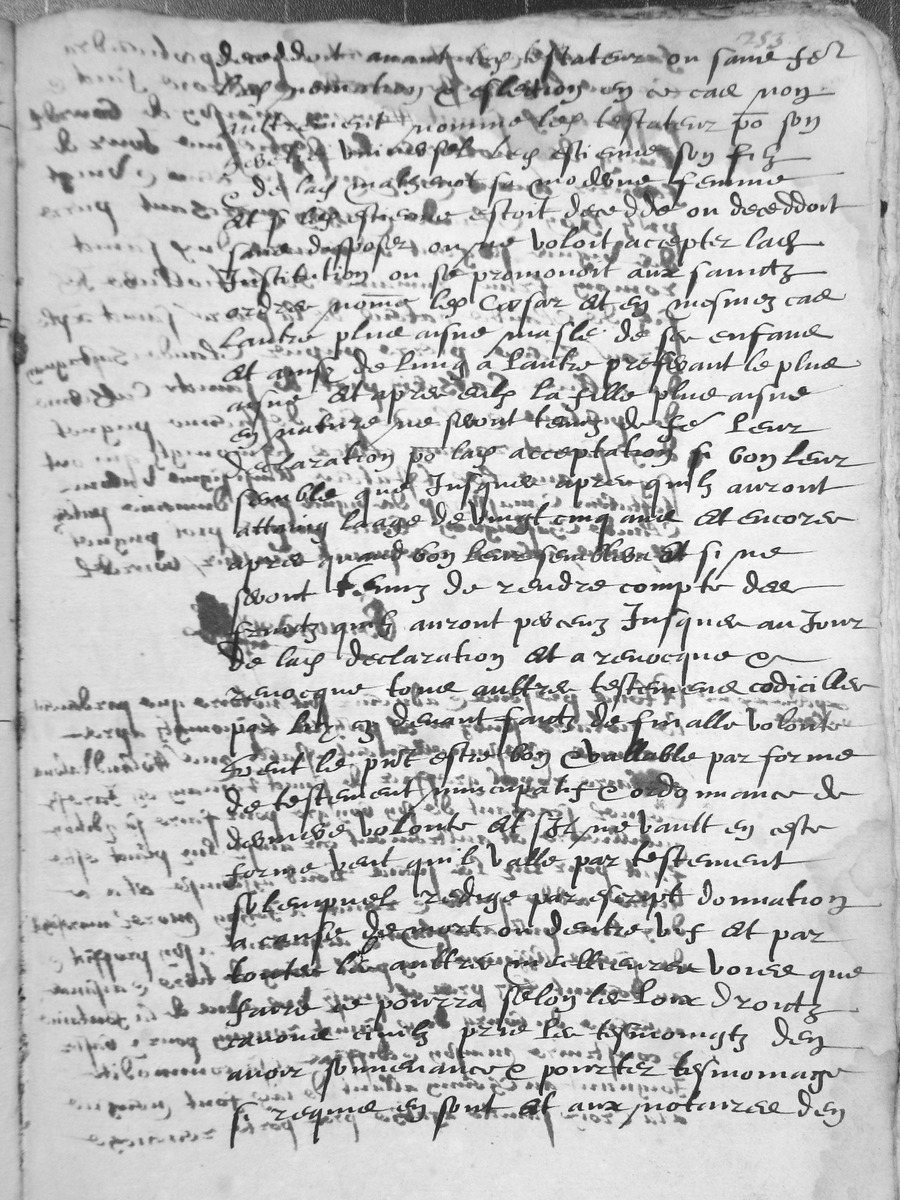 253
deceddoit avant led testateur ou sans fe
lad nomination & eslection en ce cas non
aultrement nomme led testateur po son
heretier universel led estienne son filz
& de lad sa moderne femme
Et si led estienne estoit decedde ou deceddoit
sans disposer ou ne voloit accepter lad
Institution ou se promovoit aux sainctz
ordres nome led Cesar Et en mesmes cas
lautre plus aisne masle de ses enfans
et ainsy de lung a lautre preferant le plus
aisne Et apres eulx la fille plus aisne
en nature ne seront tenuz de fe leur
declaration po lad acceptation si bon leur
semble que Jusques apres quilz auront
attaing laage de vingt cinq ans Et encores
apres quand bon leur semblera Et si ne
seront tenuz de rendre compte des
fruictz quilz auront perceuz Jusques au Jour
de lad declaration Et a revocque &
revocque tous aultres testemens codicilles
par luy cy devant faictz de sa finalle volonte
Veult le pnt estre bon & vallable par forme
de testement nuncupatif & ordonnance de
derniere volonte Et sil ne vault en ceste
forme veut quil valle par testement
solempnel redige par escript donnation
a cause de mort ou dentre vif Et par
toutes les aultres meilleures voies que
faire se pourra selon les loix droictz
canons civilz prie les tesmoingtz den
avoir souvenance & pourter tesmoniage
si requis en sont Et aux notaires den